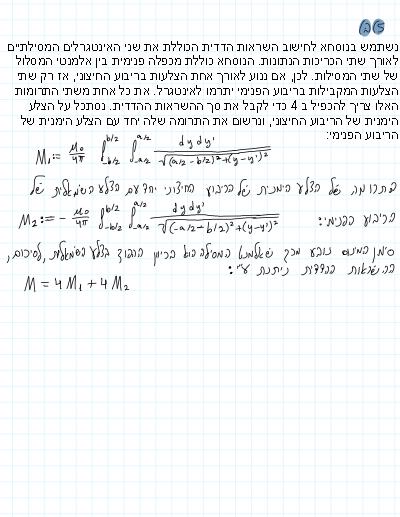 25
נשתמש בנוסחא לחישוב השראות הדדית הכוללת את שני האינטגרלים המסילתיים
לאורך שתי הכריכות הנתונות. הנוסחא כוללת מכפלה פנימית בין אלמנטי המסלול
של שתי המסילות. לכן, אם ננוע לאורך אחת הצלעות בריבוע החיצוני, אז רק שתי
הצלעות המקבילות בריבוע הפנימי יתרמו לאינטגרל. את כל אחת משתי התרומות
האלו צריך להכפיל ב 4 כדי לקבל את סך ההשראות ההדדית. נסתכל על הצלע
הימנית של הריבוע החיצוני, ונרשום את התרומה שלה יחד עם הצלע הימנית של
הריבוע הפנימי:
M₁ := μ₀/4π ∫_{-b/2}^{b/2} ∫_{-a/2}^{a/2} dy dy' / √((a/2 - b/2)² + (y-y')²)
התרומה של הצלע הימנית של הריבוע החיצוני יחד עם הצלע השמאלית של
הריבוע הפנימי:
M₂ := - μ₀/4π ∫_{-b/2}^{b/2} ∫_{-a/2}^{a/2} dy dy' / √((-a/2 - b/2)² + (y-y')²)
סימן המינוס נובע מכך שאלמנט המסילה הוא בכיוון ההפוך בצלע השמאלית, לסיכום,
ההשראות ההדדית ניתנת ע"י:
M = 4M₁ + 4M₂